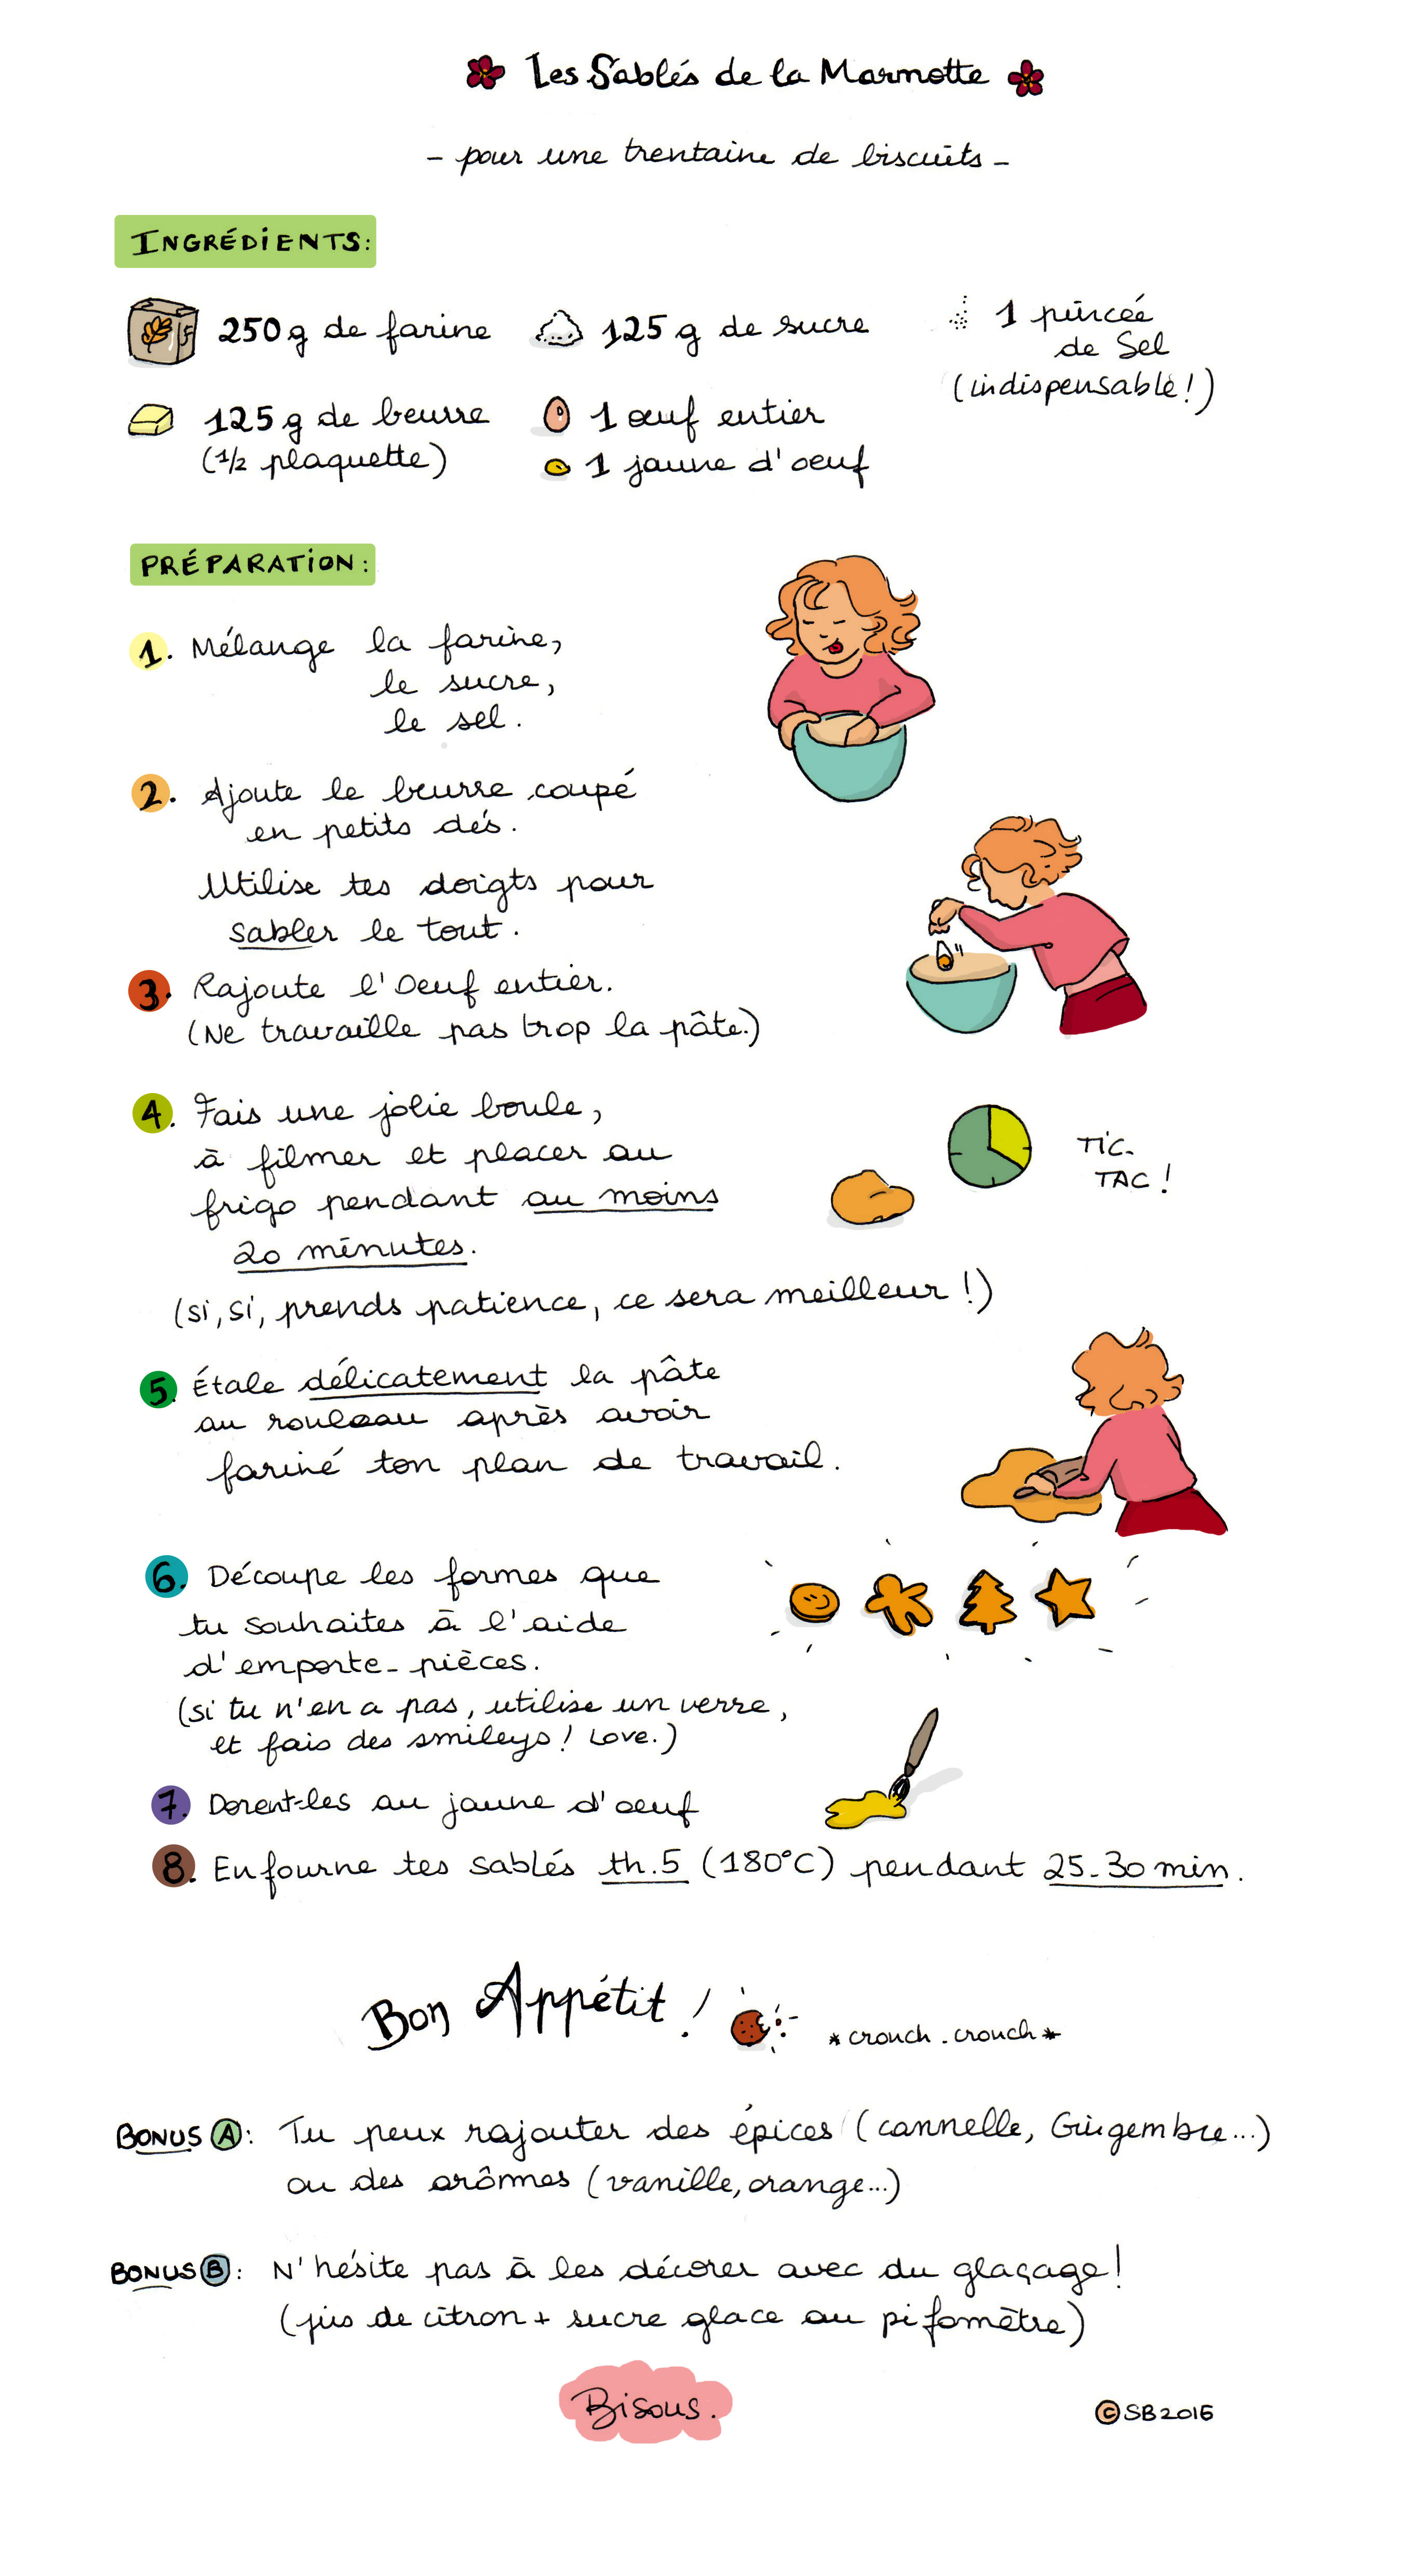 Les Sablés de la Marmotte
- pour une trentaine de biscuits -
INGRÉDIENTS:
250g de farine
125g de sucre
1 pincée
de Sel
(indispensable!)
125g de beurre
(1/2 plaquette)
1 œuf entier
1 jaune d'oeuf
PRÉPARATION:
1. Mélange la farine,
le sucre,
le sel.
2. Ajoute le beurre coupé
en petits dés.
Utilise tes doigts pour
sabler le tout.
3. Rajoute l'Oeuf entier.
(Ne travaille pas trop la pâte.)
4. Fais une jolie boule,
à filmer et placer au
frigo pendant au moins
20 minutes.
(si, si, prends patience, ce sera meilleur !)
TIC.
TAC !
5. Étale délicatement la pâte
au rouleau après avoir
fariné ton plan de travail.
6. Découpe les formes que
tu souhaites à l'aide
d'emporte-pièces.
(si tu n'en a pas, utilise un verre,
et fais des smileys ! Love.)
7. Dorent-les au jaune d'oeuf
8. Enfourne tes sablés th.5 (180°C) pendant 25-30 min.
Bon Appétit !
*crouch.crouch*
BONUS A: Tu peux rajouter des épices (cannelle, Gingembre...)
ou des arômes (vanille, orange...)
BONUS B: N'hésite pas à les décorer avec du glaçage!
(jus de citron + sucre glace au pifomètre)
Bisous.
©SB2015